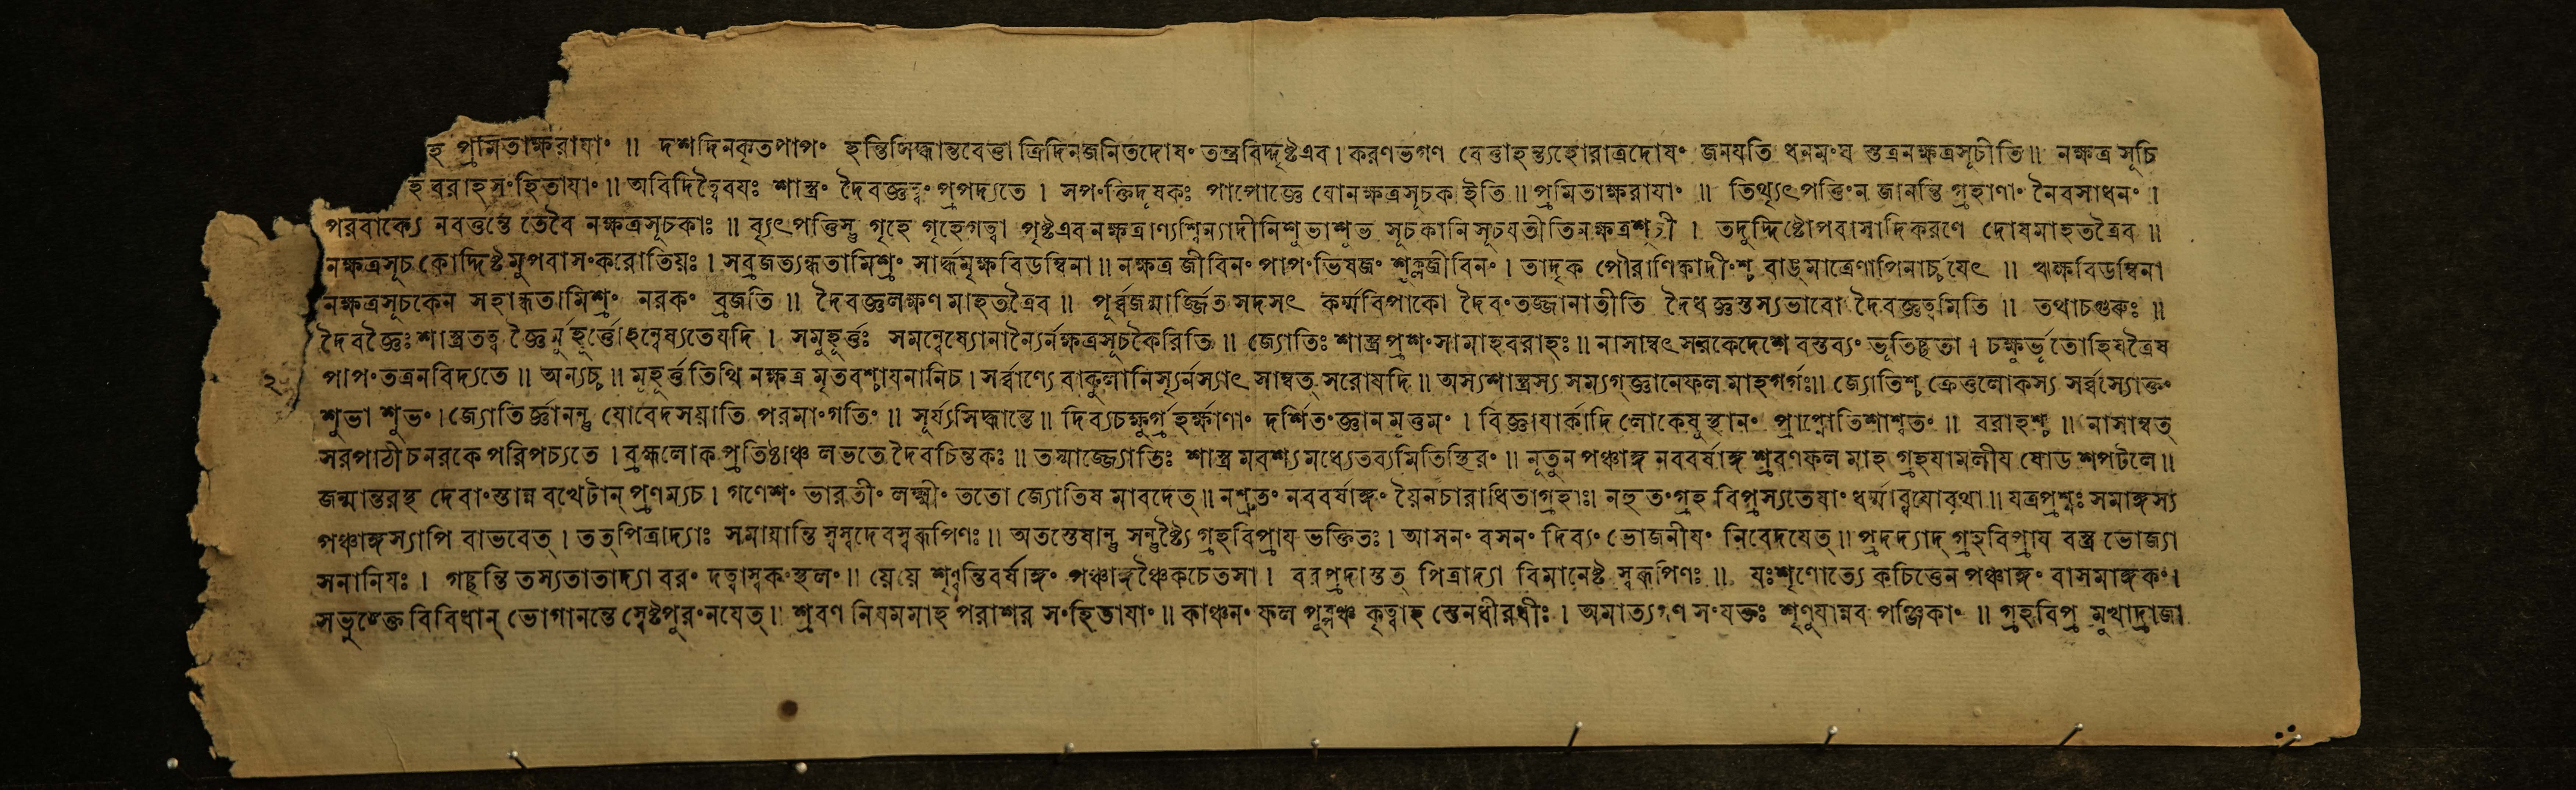 হ প্রমিতাক্ষরাযা॰ ॥ দশদিনকৃতপাপ॰ হন্তিসিদ্ধান্তবেত্তা ত্রিদিনজনিতদোষ॰ তন্ত্রবিদ্দৃষ্টএব । করণভগণ বেত্তাহন্ত্যহোরাত্রদোষ॰ জনযতি ধনম॰ঘ স্তত্রনক্ষত্রসূচীতি ॥ নক্ষত্র সূচি
হ বরাহস॰হিতাযা॰ ॥ অবিদিত্বৈবযঃ শাস্ত্র॰ দৈবজ্ঞত্ব॰ প্রপদ্যতে । সপ॰ক্তিদূষকঃ পাপোজ্ঞে যোনক্ষত্রসূচক ইতি ॥ প্রমিতাক্ষরাযা॰ ॥ তিথ্যৎপত্তি॰ন জানন্তি গ্রহাণা॰ নৈবসাধন॰ ।
পরবাক্যে নবত্তন্তে তেবৈ নক্ষত্রসূচকাঃ ॥ ব্যৎপত্তিস্তু গৃহে গৃহেগত্বা পৃষ্টএব নক্ষত্রাণ্যশ্বিন্যাদীনিশুভাশুভ সূচকানি সূচযতীতিনক্ষত্রশ চী । তদুদ্দিষ্টোপবাসাদিকরণে দোষমাহতত্রৈব ॥
নক্ষত্রসূচ কোদ্দিষ্টমুপবাস॰করোতিয়ঃ । সব্রজত্যন্ধতামিশ্র॰ সার্দ্ধমৃক্ষবিডম্বিনা ॥ নক্ষত্র জীবিন॰ পাপ॰ভিষজ॰ শুল্কজীবিন॰ । তাদৃক পৌরাণিকাদী॰শ্চ বাঙ্মাত্রেণাপিনার্চ্চযেৎ ॥ ঋক্ষবিডম্বিনা
নক্ষত্রসূচকেন সহান্ধতামিশ্র॰ নরক॰ ব্রজতি ॥ দৈবজ্ঞলক্ষণ মাহতত্রৈব ॥ পূর্ব্বজন্মার্জ্জিত সদসৎ কর্ম্মবিপাকো দৈব॰তজ্জানাতীতি দৈধজ্ঞস্তস্যভাবো দৈবজ্ঞত্বমিতি ॥ তথাচগুরুঃ ॥
দৈবজ্ঞৈঃ শাস্ত্রতত্ব জ্ঞৈর্মুহূর্ত্তোহন্বেষ্যতেযদি । সমুহূর্ত্তঃ সমন্বেষ্যোনান্যৈর্নক্ষত্রসূচকৈরিতি ॥ জ্যোতিঃ শাস্ত্র প্রশ॰সামাহবরাহঃ ॥ নাসাম্বৎ সরকেদেশে বস্তব্য॰ ভূতিচ্ছতা । চক্ষুর্ভূ তোহিযত্রৈষ
২ পাপ॰তত্রনবিদ্যতে ॥ অন্যচ্চ ॥ মূহূর্ত্ততিথি নক্ষত্র মৃতবশ্চাযনানিচ । সর্ব্বাণ্যে বাকুলানিস্যূর্নস্যাৎ সাম্বত্ সরোষদি ॥ অস্যশাস্ত্রস্য সম্যগ্জ্ঞানেফল মাহগর্গঃ ॥ জ্যোতিশ্চ ক্রেত্তলোকস্য সর্ব্বস্যোক্ত॰
শুভা শুভ॰ । জ্যোতির্জ্ঞানন্তু যোবেদসয়াতি পরমা॰গতি॰ ॥ সূর্য্যসিদ্ধান্তে ॥ দিব্যচক্ষুর্গ্রহর্ক্ষাণা॰ দর্শিত॰জ্ঞান মুত্তম॰ । বিজ্ঞাযার্কাদি লোকেষু স্থান॰ প্রাপ্নোতিশাশ্বত॰ ॥ বরাহশ্চ ॥ নাসাম্বত্
সরপাঠীচনরকে পরিপচ্যতে । ব্রহ্মলোক প্রতিষ্ঠাঞ্চ লভতে দৈবচিন্তকঃ ॥ তস্মাজ্জ্যোতিঃ শাস্ত্র মবশ্য মধ্যেতব্যমিতিস্থির॰ ॥ নূতুন পঞ্চাঙ্গ নববর্ষাঙ্গ শ্রবণফল মাহ গ্রহযামলীয ষোড শপটলে ॥
জন্মান্তরহ দেবা॰স্তান্ন বখেটান্ প্রণম্যচ । গণেশ॰ ভারতী॰ লক্ষ্মী॰ ততো জ্যোতিষ মাবদেত্ ॥ নশ্রুত॰ নববর্ষাঙ্গ॰ যৈনচারাধিতাগ্রহাঃ । নহু ত॰গ্রহ বিপ্রস্যতেষা॰ ধর্ম্মাবৃযোবৃথা ॥ যত্রপ্রশ্নঃ সমাঙ্গস্য
পঞ্চাঙ্গস্যাপি বাভবেত্ । তত্পিত্রাদ্যাঃ সমাযান্তি স্বস্বদেবস্বরূপিণঃ ॥ অতস্তেষান্তু সন্তুষ্ট্যৈ গ্রহবিপ্রায ভক্তিতঃ । আসন॰ বসন॰ দিব্য॰ ভোজনীয॰ নিবেদযেত্ ॥ প্রদদ্যাদ্ গ্রহবিপ্রায বস্ত্র ভোজ্যা
সনানিযঃ । গচ্ছন্তি তস্যতাতাদ্যা বর॰ দত্বাস্বক॰স্থল॰ ॥ য়েয়ে শৃণ্বন্তিবর্ষাঙ্গ॰ পঞ্চাঙ্গঞ্চৈকচেতসা । বরপ্রদাস্তত্ পিত্রাদ্যা বিমানেষ্ট স্বরূপিণঃ ॥ যঃশৃণোত্যে কচিত্তেন পঞ্চাঙ্গ॰ বাসমাঙ্গক॰ ।
সভুঙেক্ত বিবিধান্ ভোগানন্তে স্বেষ্টপুর॰নযেত্ ॥ শ্রবণ নিযমমাহ পরাশর স॰হিতাযা॰ ॥ কাঞ্চন॰ ফল পুষ্পঞ্চ কৃত্বাহ স্তেনধীরধীঃ । অমাত্যগণ স॰যক্তঃ শৃণুযান্নব পঞ্জিকা॰ ॥ গ্রহবিপ্র মুখাদ্রাজা